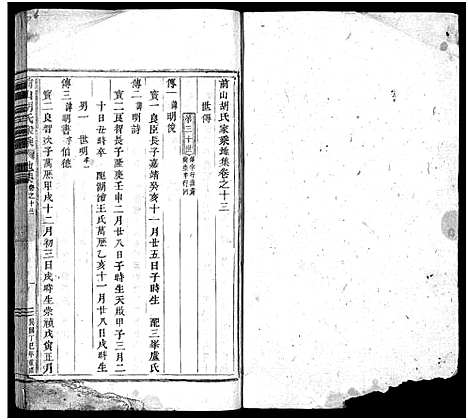 前山胡氏家乘 卷之十三
世傳
第三十世
傳一 諱明悅
寶一良臣長子嘉靖癸亥十一月廿五日子時生 配三峯盧氏
傳二 諱明詩
寶二良智長子隆慶壬申二月廿八日子時生天啟甲子三月二
十日丑時卒 配湖滄王氏萬曆乙亥十一月廿八日戌時生
男一 世明
傳三 諱明書 字伯德
寶二良智次子萬曆甲戌十二月初三日戌時生崇禎戊寅正月
前山胡氏家乘 卷之十三
民國丁巳年重修